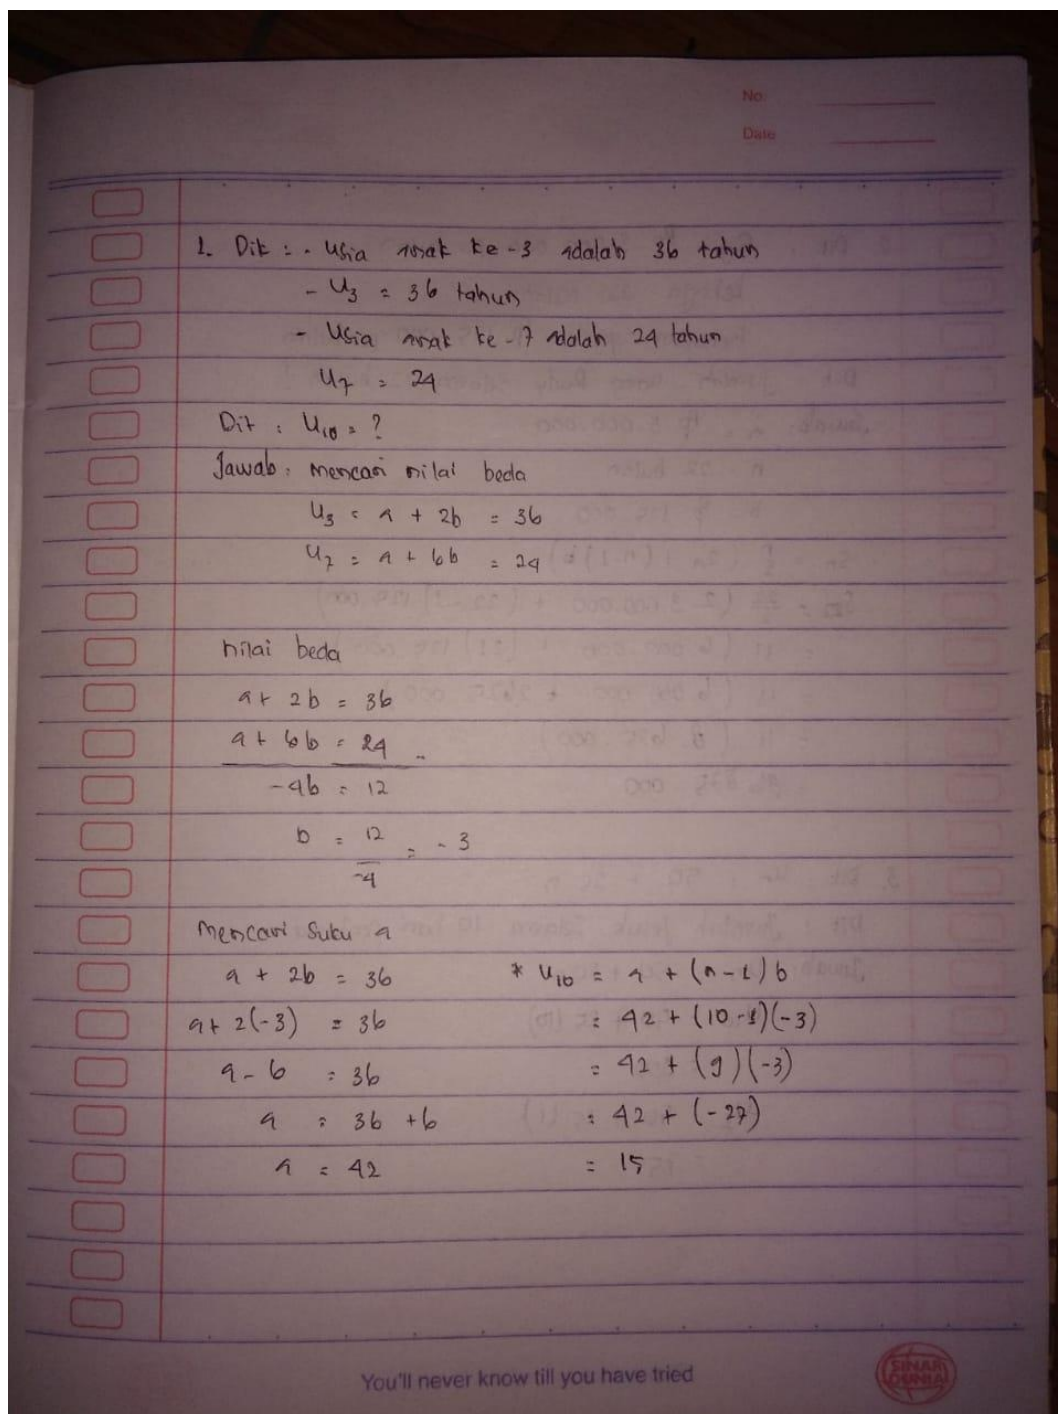 No.
Date
1. Dik : - Usia anak ke-3 adalah 36 tahun
- U3 = 36 tahun
- Usia anak ke-7 adalah 24 tahun
U7 = 24
Dit : U10 = ?
Jawab : mencari nilai beda
U3 = a + 2b = 36
U7 = a + 6b = 24
nilai beda
a + 2b = 36
a + 6b = 24 -
-4b = 12
b = 12 = -3
-4
Mencari suku a
a + 2b = 36
a + 2(-3) = 36
a - 6 = 36
a = 36 + 6
a = 42
* U10 = a + (n-1) b
= 42 + (10-1)(-3)
= 42 + (9)(-3)
= 42 + (-27)
= 15
You'll never know till you have tried
SINAR
DUNIA